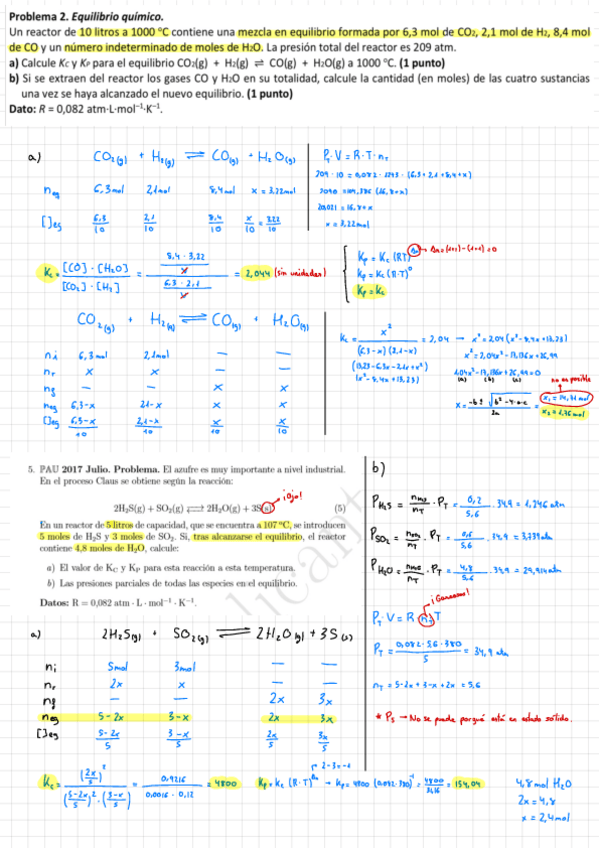 Problema 2. Equilibrio químico.
Un reactor de 10 litros a 1000 ºC contiene una mezcla en equilibrio formada por 6,3 mol de CO₂, 2,1 mol de H₂, 8,4 mol
de CO y un número indeterminado de moles de H₂O. La presión total del reactor es 209 atm.
a) Calcule Kc y Kp para el equilibrio CO₂(g) + H₂(g) ⇌ CO(g) + H₂O(g) a 1000 ºC. (1 punto)
b) Si se extraen del reactor los gases CO y H₂O en su totalidad, calcule la cantidad (en moles) de las cuatro sustancias
una vez se haya alcanzado el nuevo equilibrio. (1 punto)
Dato: R = 0,082 atm·L·mol⁻¹·K⁻¹.
a) CO₂(g) + H₂(g) ⇌ CO(g) + H₂O(g)
neq 6,3mol 2,1mol 8,4mol x = 3,22mol
[ ]eq 6,3/10 2,1/10 8,4/10 x/10 = 3,22/10
PT·V = R·T·nT
209·10 = 0,082·1273·(6,3+2,1+8,4+x)
2090 = 104,386 (16,8+x)
20,021 = 16,8+x
x = 3,22mol
Kc = [CO]·[H₂O] / [CO₂]·[H₂] = 8,4·3,22 / 6,3·2,1 = 2,044 (sin unidades)
Kp = Kc (RT)^Δn → Δn = (1+1)-(1+1) = 0
Kp = Kc (R·T)⁰
Kp = Kc
CO₂(g) + H₂(g) ⇌ CO(g) + H₂O(g)
ni 6,3mol 2,1mol — —
nr x x — —
nf — — x x
neq 6,3-x 2,1-x x x
[ ]eq 6,3-x/10 2,1-x/10 x/10 x/10
Kc = x² / (6,3-x)(2,1-x) = 2,04 → x² = 2,04(x²-8,4x+13,23)
(13,23-6,3x-2,1x+x²) x² = 2,04x²-17,136x+26,99
(x²-8,4x+13,23) 1,04x²-17,136x+26,99=0
(a) (b) (c)
no es posible
x = -b ± √b²-4·a·c / 2a = x₁ = 14,71 mol
x₂ = 1,76 mol
5. PAU 2017 Julio. Problema. El azufre es muy importante a nivel industrial.
En el proceso Claus se obtiene según la reacción:
¡Ojo!
2H₂S(g) + SO₂(g) ⇌ 2H₂O(g) + 3S(s) (5)
En un reactor de 5 litros de capacidad, que se encuentra a 107 ºC, se introducen
5 moles de H₂S y 3 moles de SO₂. Si, tras alcanzarse el equilibrio, el reactor
contiene 4,8 moles de H₂O, calcule:
a) El valor de KC y KP para esta reacción a esta temperatura.
b) Las presiones parciales de todas las especies en el equilibrio.
Datos: R = 0,082 atm · L · mol⁻¹ · K⁻¹.
b)
PH₂S = nH₂S/nT · PT = 0,2/5,6 · 34,9 = 1,246 atm
PSO₂ = nSO₂/nT · PT = 0,6/5,6 · 34,9 = 3,739 atm
PH₂O = nH₂O/nT · PT = 4,8/5,6 · 34,9 = 29,914 atm
¡Gaseosos!
PT·V = R·nT·T
PT = 0,082·5,6·380 / 5 = 34,9 atm
nT = 5-2x+3-x+2x = 5,6
* PS → No se puede porqué está en estado sólido.
a) 2H₂S(g) + SO₂(g) ⇌ 2H₂O(g) + 3S(s)
ni 5mol 3mol — —
nr 2x x — —
nf — — 2x 3x
neq 5-2x 3-x 2x 3x
[ ]eq 5-2x/5 3-x/5 2x/5 3x/5
Kc = (2x/5)² / (5-2x/5)²·(3-x/5) = 0,9216 / 0,0016·0,12 = 4800
2-3=-1
Kp = Kc (R·T)^Δn → Kp = 4800 (0,082·380)⁻¹ = 4800/31,16 = 154,04
4,8mol H₂O
2x = 4,8
x = 2,4mol